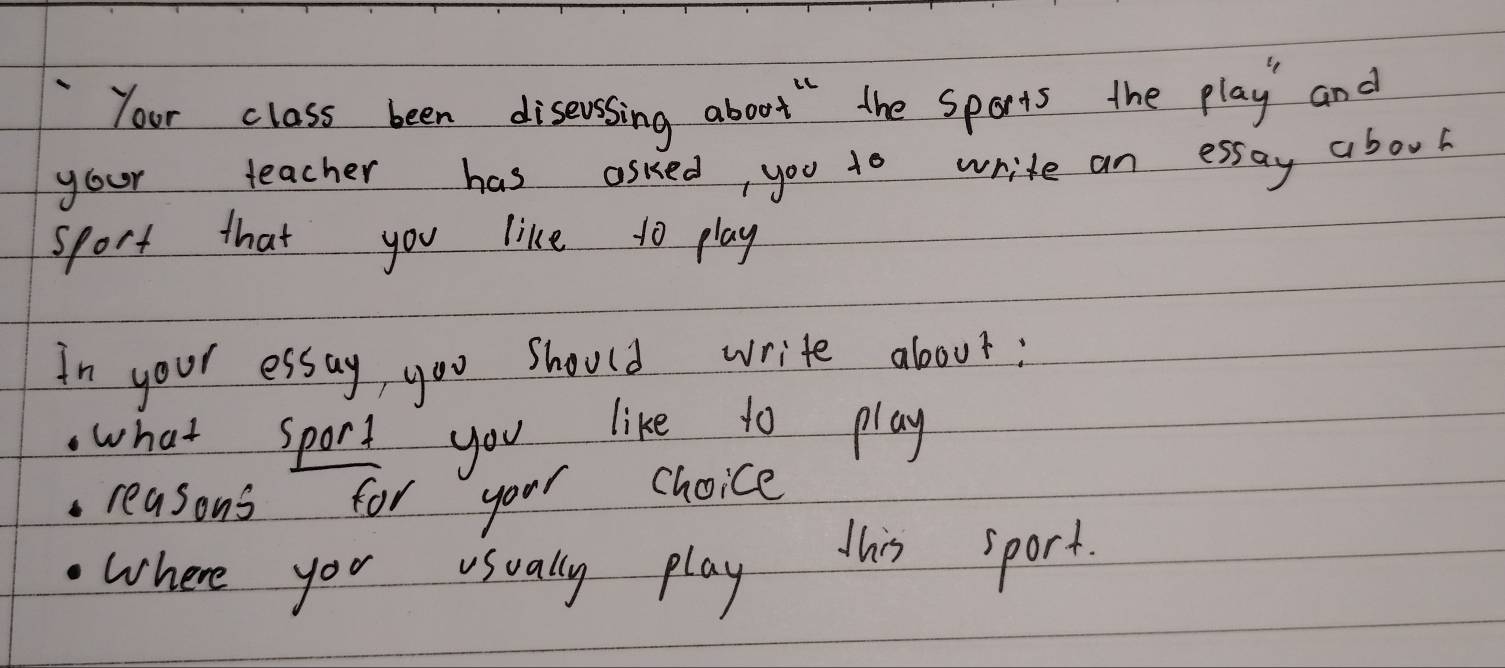 ` Your class been disevssing about " the sports the play " and
your teacher has asked, you to write an essay about
sport that you like to play
In your essay, you should write about:
• what sport you like to play
• reasons for your choice
• Where you usually play this sport.